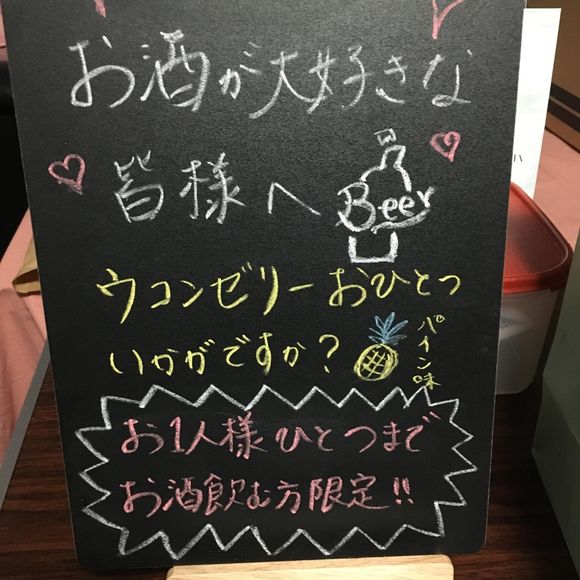 お酒が大好きな
皆様へ
Beer
ウコンゼリーおひとつ
いかがですか？
パイン味
お1人様ひとつまで
お酒飲む方限定!!